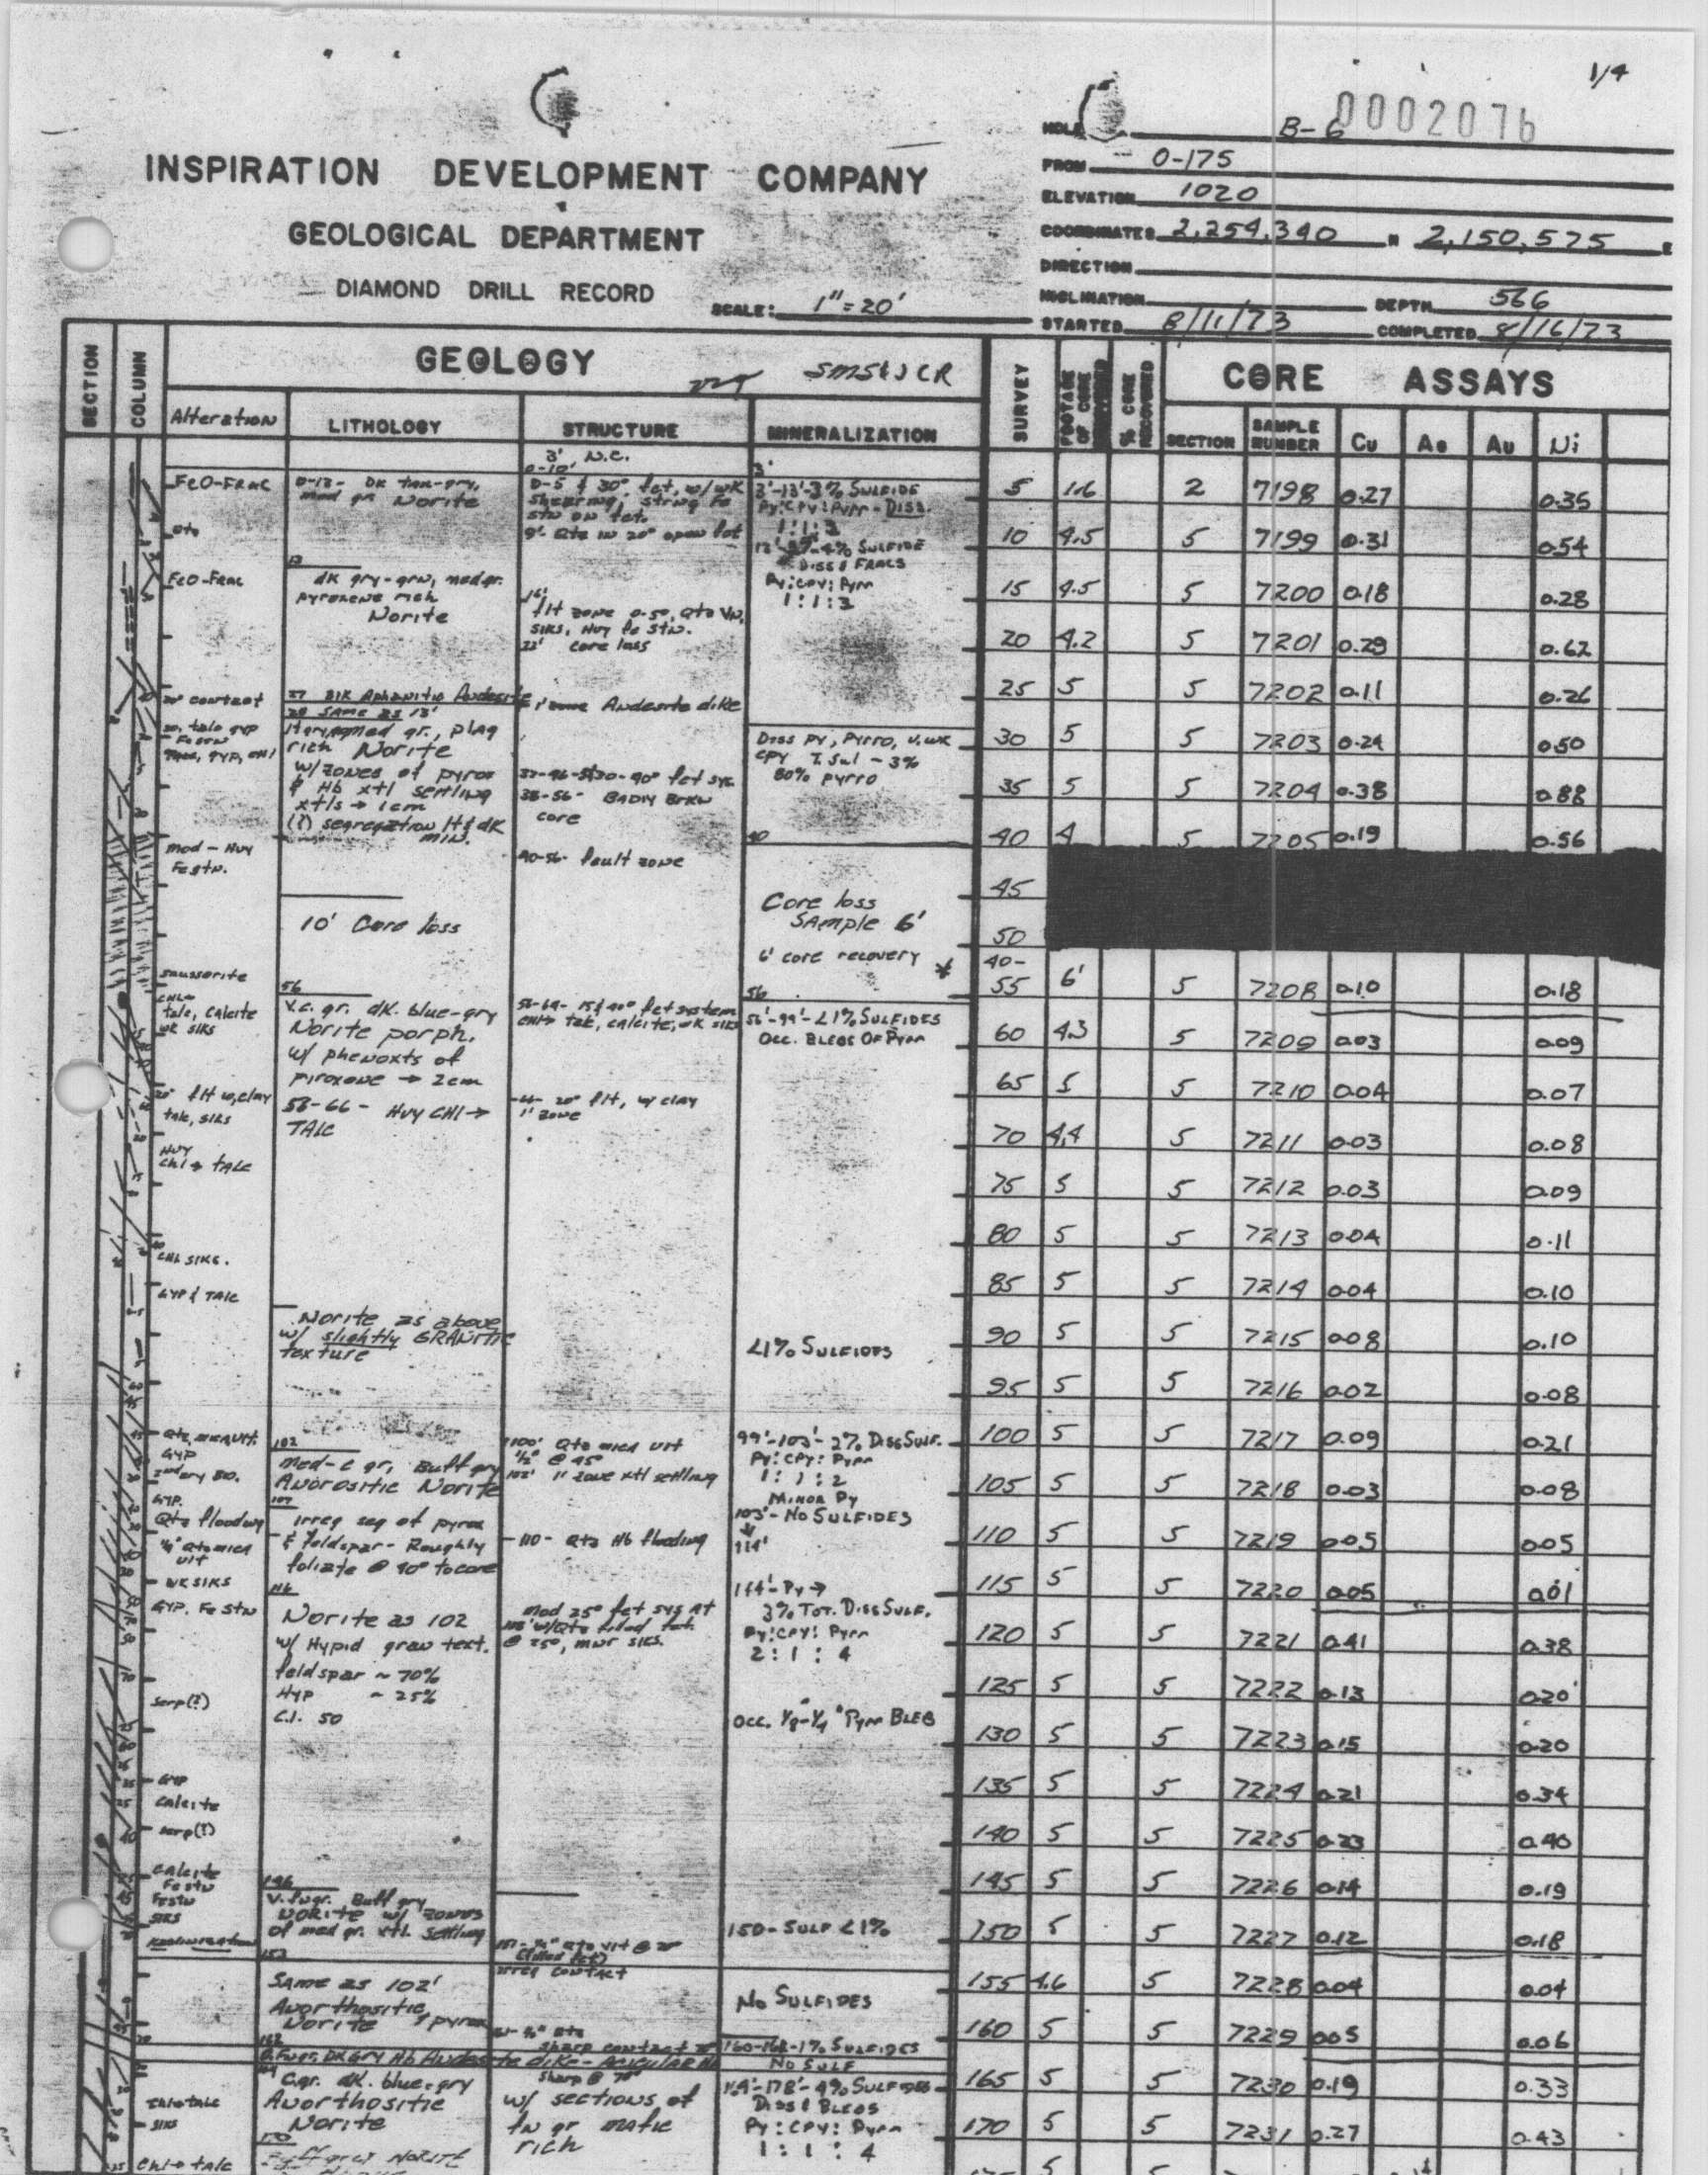 1/4
0002076
HOLE B-6
FROM 0-175
INSPIRATION DEVELOPMENT COMPANY
ELEVATION 1020
GEOLOGICAL DEPARTMENT
COORDINATES 2,254,340 N 2,150,575 E
DIRECTION
DIAMOND DRILL RECORD
SCALE: 1"=20'
INCLINATION DEPTH 566
STARTED 8/11/73 COMPLETED 8/16/73
SECTION
COLUMN
GEOLOGY
SMS & JCR
SURVEY
FOOTAGE OF CORE
% CORE RECOVERED
CORE ASSAYS
Alteration LITHOLOGY STRUCTURE MINERALIZATION
SECTION SAMPLE NUMBER Cu Ag Au Ni
FeO-Frac
qtz
FeO-Frac
20° contact
mod - Hvy
Fe stn.
saussorite
CHL→
talc, calcite
wk slks
20° flt w, clay
talc, slks
Hvy
chl → talc
CHL SlKS.
GYP & TALC
GYP
GYP.
Qtz flooding
WK SlKS
GYP. Fe Stn
serp(?)
GYP
calcite
serp(?)
calcite
Fe stn
Fe stn
SlKS
Chl→talc
SlKS
Chl→ talc
0-13- DK tan-gry,
med gr Norite
13
dk gry-grn, med gr.
pyroxene rich
Norite
27 Blk Aphanitic Andesite
28 SAME as 13'
rich Norite
w/zones of pyrox
& Hb xtl settling
xtls → 1cm
(?) segregation lt & dk
min.
10' Core loss
56
V.c. gr. dk. blue-gry
Norite porph.
w/ phenoxts of
piroxone → 2cm
58-66- Hvy CHl →
TALC
Norite as above
w/ slightly GRANITIC
texture
102
med-c gr, Buff gry
Anorositic Norite
107
irreg seg of pyrox
& feldspar- Roughly
foliate @ 40° to core
116
Norite as 102
w/ Hypid gran text.
feldspar ~ 70%
Hyp ~ 25%
C.I. 50
146
V. fn gr. Buff gry
NORite w/ zones
of med gr. xtl. settling
153
SAME as 102'
Anorthositic
Norite
162
C.gr. dk. blue-gry
Anorthositic
Norite
170
3' N.C.
0-10'
0-5 & 30° fct, w/ wk
shearing, strng Fe
stn on fct.
9'- Qtz in 20° open fct
16'
flt zone 0-50, Qtz VN,
SlKS, Hvy fe stn.
22' core loss
1' zone Andesite dike
38-56- BADlY BrKN
core
40-56- fault zone
1" zone
100' Qtz mica vlt
1/2" @ 45°
102' 1" zone xtl settling
110- Qtz Hb flooding
mod 25° fct sys At
@ 25°, mnr slks.
irreg contact
sharp @ 70°
w/ sections of
fn gr mafic
rich
3'
3'-13'-3% SULFIDE
Py:Cpy:Pyrr - Diss.
1:1:3
DISS & FRACS
Py:Cpy:Pyrr
1:1:3
Diss py, pyrro, v. wk
cpy T. Sul ~ 3%
80% pyrro
40
Core loss
SAmple 6'
6' core recovery *
56
56'-99'-<1% SULFIDES
OCC. BLEBS OF Pyrr
<1% SULFIDES
99'-103'- 2% DISS SULF.
Py:Cpy:Pyrr
1:1:2
MINOR Py
103'- NO SULFIDES
114'
114'-Py→
3% TOT. DISS SULF.
Py:Cpy:Pyrr
2:1:4
OCC. 1/8-1/4" Pyrr BLEB
150- SULF <1%
NO SULFIDES
NO SULF
DISS & BLEBS
Py:Cpy:Pyrr
1:1:4
5 1.6 2 7198 0.27 0.35
10 4.5 5 7199 0.31 0.54
15 4.5 5 7200 0.18 0.28
20 4.2 5 7201 0.29 0.62
25 5 5 7202 0.11 0.26
30 5 5 7203 0.24 0.50
35 5 5 7204 0.38 0.88
40 4 5 7205 0.19 0.56
45
50
40-
55 6' 5 7208 0.10 0.18
60 4.3 5 7209 0.03 0.09
65 5 5 7210 0.04 0.07
70 4.4 5 7211 0.03 0.08
75 5 5 7212 0.03 0.09
80 5 5 7213 0.04 0.11
85 5 5 7214 0.04 0.10
90 5 5 7215 0.08 0.10
95 5 5 7216 0.02 0.08
100 5 5 7217 0.09 0.21
105 5 5 7218 0.03 0.08
110 5 5 7219 0.05 0.05
115 5 5 7220 0.05 0.01
120 5 5 7221 0.41 0.38
125 5 5 7222 0.13 0.20
130 5 5 7223 0.15 0.20
135 5 5 7224 0.21 0.34
140 5 5 7225 0.23 0.40
145 5 5 7226 0.14 0.19
150 5 5 7227 0.12 0.18
155 4.6 5 7228 0.04 0.04
160 5 5 7229 0.05 0.06
165 5 5 7230 0.19 0.33
170 5 5 7231 0.27 0.43